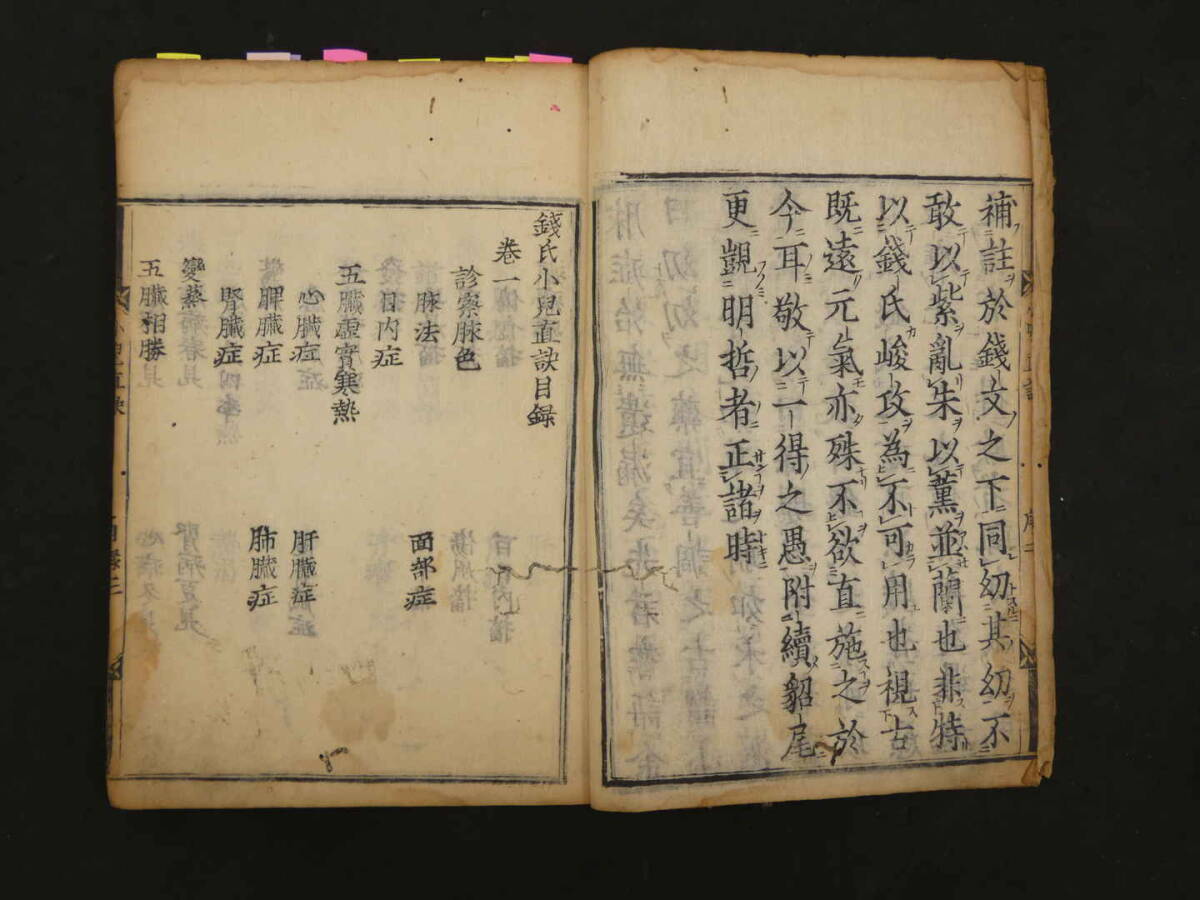 補註於錢文之下同幼其幼不
敢以紫亂朱以薰並蘭也非特
以錢氏峻攻為不可用也視古
既遠元氣亦殊不欲直施之於
今耳敬以一得之愚附續貂尾
更覬明哲者正諸時
錢氏小兒直訣目録
卷一
診察脉色
脉法
面部症
目内症
五臟虛實寒熱
心臟症
肝臟症
脾臟症
肺臟症
腎臟症
變蒸
五臟相勝